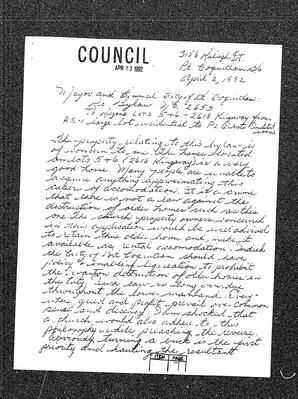 COUNCIL
APR 13 1992
3156 Raleigh St
Pt. Coquitlam BC
April 2, 1992
Mayor and Council City of Pt. Coquitlam:
Re Bylaw No 2653
To Rezone Lots 5+6 - 2618 Kingsway from
RS-1 large lot residential to P1
The property relating to this bylaw is
of concern to me. The house located
on lots 5+6 (2618 Kingsway) is a very
good home. Many people are unable to
acquire anything approximating this
caliber of accomodation. It is a crime
that there is not a law against the
destruction of older homes such as this
one. The church property owners concerned
in this application would be well advised
to retain this older home and make it
available as rental accomodation. Indeed
the City of Port Coquitlam should have
policy & enabling legislation to prohibit
the wanton destruction of older homes in
the City. Such law is long overdue
throughout the lower mainland. Every-
where greed and profit prevail over common
sense and decency. I am shocked that
a church would also adhere to this
philosophy while preaching the reverse.
Obviously turning a buck is the first
priority and the resultant
ITEM PAGE